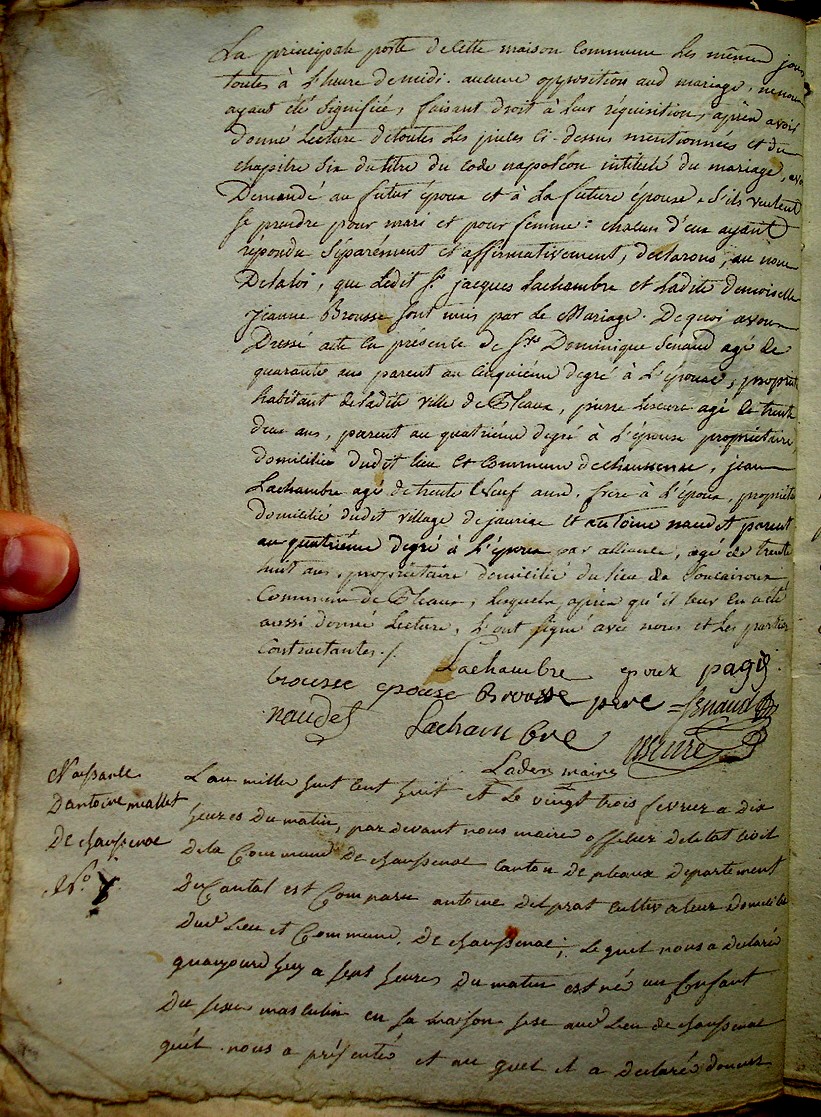 La principale porte de cette maison Commune les mêmes jours
toutes à L'heure de midi. aucune opposition aud mariage, ne nous
ayant été signifiée, faisant droit à leur réquisition, après avoir
donné Lecture de toutes Les pieces Ci-dessus mentionnées et du
chapitre Six du titre du Code napoléon intitulé du mariage, avons
Demandé au futur époux et à La future épouse, S'ils veulent
se prendre pour mari et pour femme: chacun d'eux ayant
répondu Séparément et affirmativement, déclarons, au nom
De la loi, que Ledit Sr jacques Lachambre et Ladite demoiselle
Jeanne Brousse sont unis par Le Mariage. De quoi avons
Dressé acte en présence de Srs Dominique Senaud agé de
quarante ans parent au cinquième degré à L'épouse, propriét
habitant de ladite ville de Pleaux, pierre Lescure agé de trente
deux ans, parent au quatrième degré à L'épouse propriétaire
domicilié dudit lieu et Commune de chaussenac, jean
Lachambre agé de trente neuf ans, frère à L'époux, propriét
domicilié dudit village de jauriac et antoine naudet parent
au quatrieme degré à L'époux par alliance, agé de trente
huit ans, propriétaire domicilié du lieu de
Commune de Pleaux, Lesquels, après qu'il leur en a été
aussi donné Lecture, L'ont signé avec nous et Les parties
Contractantes./.
Lachambre epoux pagis
brousse epouse Brousse pere Senaud
naudet Lachambre Lescure
Laden maire
Naissance
D'antoine miallet
De chaussenac
No
L'an mille huit cent huit et Le vingt trois fevrier a dix
heures Du matin, par devant nous maire officier de letat civil
De la Commune De chaussenac canton de pleaux departement
Du Cantal est Comparu antoine delprat cultivateur domicilié
Dud Lieu et Commune De chaussenac; Lequel nous a declaré
quaujourdhuy a sept heures Du matin est né un Enfant
Du sexe masculin en sa maison sise aud Lieu de chaussenac
quil nous a présenté et au quel il a declaré donner